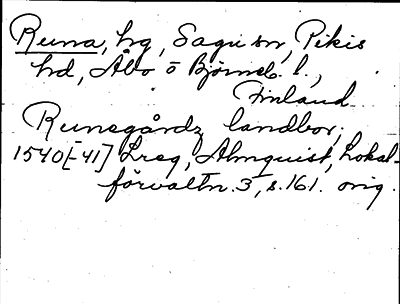 Runa, hg, Sagu sn, Pikis
hd, Åbo o Björneb. l.,
Finland
Runegårdz landbor;
1540[-41] Lreg, Almquist, Lokal-
förvaltn. 3, s. 161. orig.